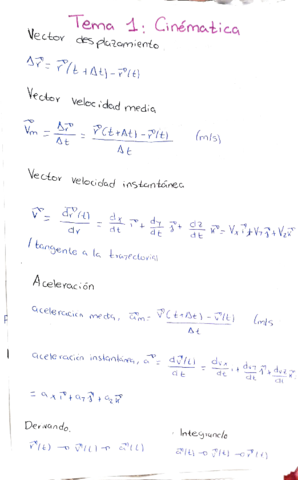 Tema 1: Cinématica
Vector desplazamiento
Δr⃗ = r⃗(t + Δt) - r⃗(t)
Vector velocidad media
v⃗m = Δr⃗/Δt = (r⃗(t+Δt) - r⃗(t))/Δt (m/s)
Vector velocidad instantánea
v⃗ = dr⃗(t)/dr = dx/dt i⃗ + dy/dt j⃗ + dz/dt k⃗ = Vx i⃗ + Vy j⃗ + Vz k⃗
/ tangente a la trayectoria
Aceleración
aceleración media, a⃗m = (v⃗(t+Δt) - v⃗(t))/Δt (m/s
aceleración instantánea, a⃗ = dv⃗(t)/dt = dvx/dt i + dvy/dt j⃗ + dvz/dt k⃗
= ax i⃗ + ay j⃗ + az k⃗
Derivando. Integrando
r⃗(t) → v⃗(t) → a⃗(t) a⃗(t) → v⃗(t) → r⃗(t)